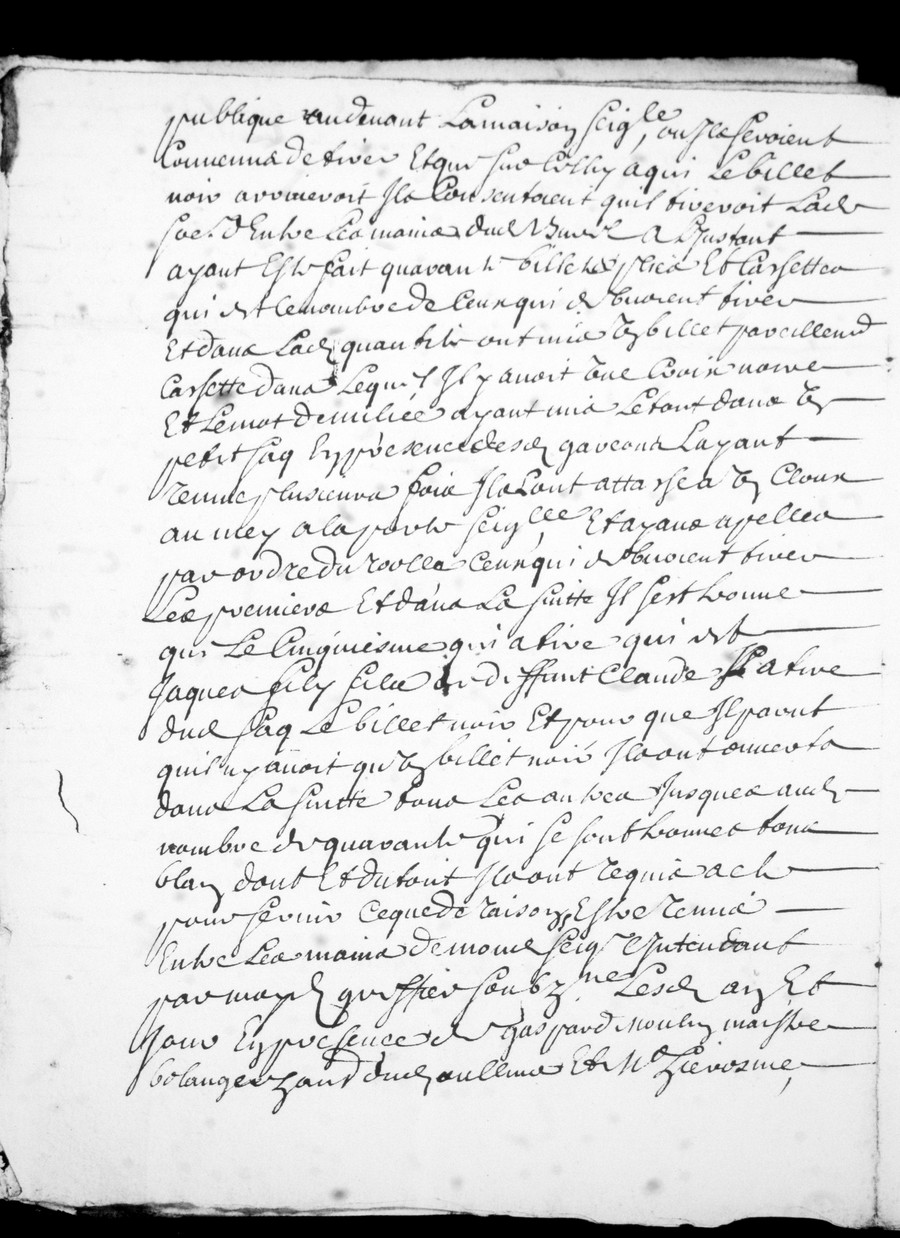 publique audevant Lamaison seigle, ou Ils seroient
Convenus de tirer Et que sur Celluy a qui Le billet
noir arriveroit Ils Consentoient quil tireroit Lad
so d Entre Les mains dud A Linstant
ayant Este fait quarante billets pliés Et Cassettes
qui est lenombre de Ceux qui debvoient tirer
Et dans Lad quantite ont mis Un billet pareillemt
Cassette dans Lequel Il y avoit Une Croix noire
Et Lemot demiliée ayant mis Letout dans Un
petit saq En presence desd Layant
remue plusieurs fois Ils Lont attasché a Un Cloux
au mey a la porte seiglle, Et ayans apellés
par ordre du roolle Ceux qui debvoient tirer
Les premiers Et dans La suitte Il sest trouve
que Le Cinquiesme qui a tiré qui est
Jaques fily fils de deffunt Claude a tire
dud saq Le billet noir Et pour que Il parut
quil ny avoit qu'Un billet noir Ils ont ouverts
dans La suitte tous Les autres Jusques aud
nombre de quarante qui se sont trouvés tous
blan dont Et du tout Ils ont requis acte
pour servir Ceque de raison, Estre remis
Entre Les mains de mond seigr LIntendant
par moyd greffier soubzne Lesd an Et
Jour En presence de gaspard moulin maistre
bolanger dud Et Me hierosme,